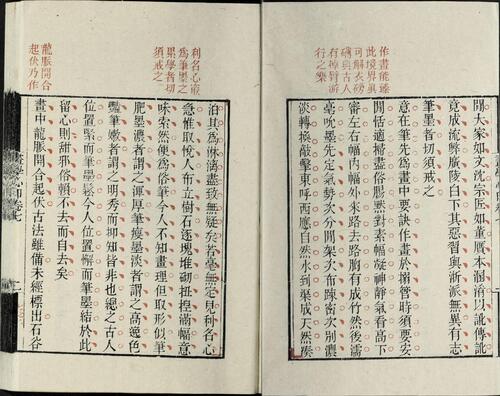 作畫能臻
此境界真
可解衣磅
礴與古人
行之樂
閒大家如文沈宗匠如董本溷淆以訛傳訛
竟成流弊廣陵白下其惡習與浙派無異有志
筆墨者切須戒之
意在筆先為畫中要訣作畫於搦管時須要安
閒恬適掃盡俗腸默對素幅凝神靜氣看高下
審左右幅內幅外來路去路胸有成竹然後濡
毫吮墨先定氣勢次分間架次布疎密次別濃
淡轉換敲擊東呼西應自然水到渠成天然湊
利名心最
為筆墨之
累學者切
須戒之
龍脈開合
起伏乃作
泊其為淋漓盡致無疑矣若毫無定見利名心
急惟取悅人布立樹石逐塊堆砌扭捏滿幅意
味索然便為俗筆今人不知畫理但取形似筆
肥墨濃者謂之渾厚筆瘦墨淡者謂之高逸色
豔筆嫩者謂之明秀而抑知皆非也總之古人
位置緊而筆墨鬆今人位置懈而筆墨結於此
留心則甜邪俗賴不去而自去矣
畫中龍脈開合起伏古法雖備未經標出石谷
畫學心印卷七